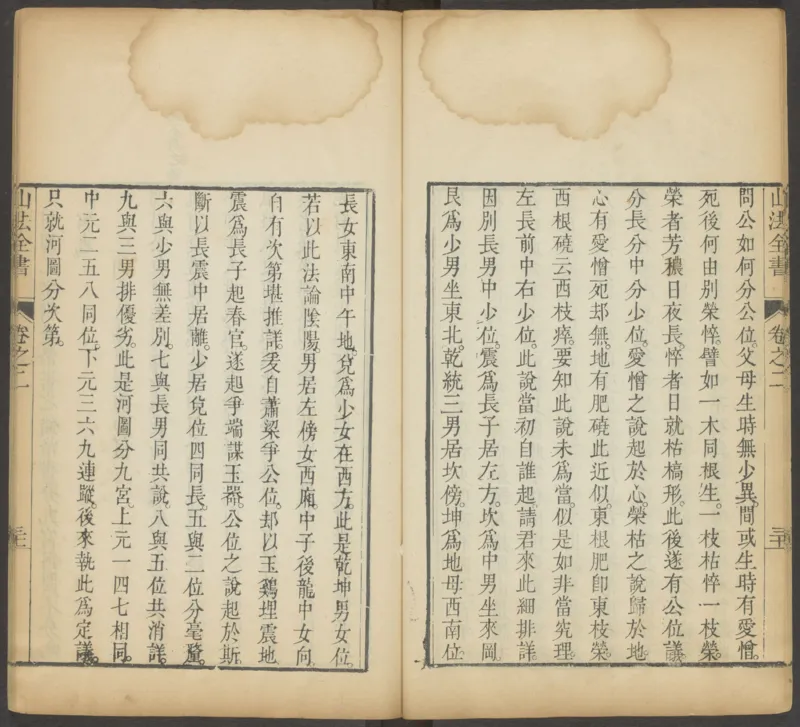 山法全書
卷之二
問公如何分公位。父母生時無少異。間或生時有愛憎。
死後何由別榮悴。譬如一木同根生。一枝枯悴一枝榮。
榮者芳穠日夜長。悴者日就枯槁形。此後遂有公位議。
分長分中分少位。愛憎之說起於心。榮枯之說歸於地。
心有愛憎死却無。地有肥磽此近似。東根肥卽東枝榮。
西根磽云西枝瘁。要知此說未爲當。似是如非當究理。
左長前中右少位。此說當初自誰起。請君來此細排詳。
因別長男中少位。震爲長子居左方。坎爲中男坐來岡。
艮爲少男坐東北。乾統三男居坎傍。坤爲地母西南位。
長女東南中午地。兌爲少女在西方。此是乾坤男女位。
若以此法論陰陽。男居左傍女西廂。中子後龍中女向。
自有次第堪推詳。爰自蕭梁爭公位。却以玉鵝埋震地。
震爲長子起春官。遂起爭端謀玉器。公位之說起於斯。
斷以長震中居離。少居兌位四同長。五與二位分毫釐。
六與少男無差別。七與長男同共說。八與五位共消詳。
九與三男排優劣。此是河圖分九宮。上元一四七相同。
中元二五八同位。下元三六九連蹤。後來執此爲定議。
只就河圖分次第。
山法全書
卷之二